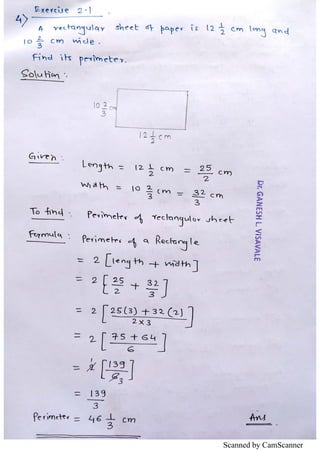 Exercise 2.1
4) A rectangular sheet of paper is 12 1/2 cm long and
10 2/3 cm wide.
Find its perimeter.
Solution :
10 2/3 cm
12 1/2 cm
Given :
Length = 12 1/2 cm = 25/2 cm
Width = 10 2/3 cm = 32/3 cm
To find : Perimeter of rectangular sheet
Formula : Perimeter of a Rectangle
= 2 [length + width]
= 2 [25/2 + 32/3]
= 2 [25(3) + 32(2) / 2×3]
= 2 [75 + 64 / 6]
= 2 1 [139 / 6 3]
= 139/3
Perimeter = 46 1/3 cm Ans
Dr. GANESH L VISAVALE
Scanned by CamScanner